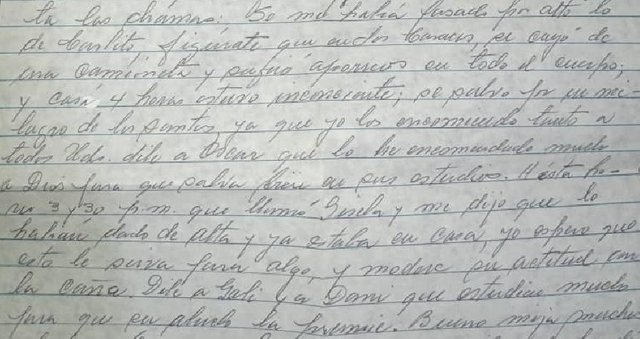 ta las chamas. Se me había pasado por alto lo
de Carlito, figúrate que en los Caracas, se cayó de
una camioneta y sufrió aporreos en todo el cuerpo;
y casi 4 horas estuvo inconsciente; se salvo por un mi-
lagro de los santos, ya que yo los encomiendo tanto a
todos Uds. dile a Oscar que lo he encomendado mucho
a Dios para que salga bien en sus estudios. Hasta ho-
ra 3 y 30 p.m. que llamó Gisela y me dijo que lo
habían dado de alta y ya estaba en casa, yo espero que
esto le sirva para algo, y modere su actitud con
la carra. Dile a Gabi y a Dani que estudien mucho
para que su abuelo la premie. Bueno mija muchos